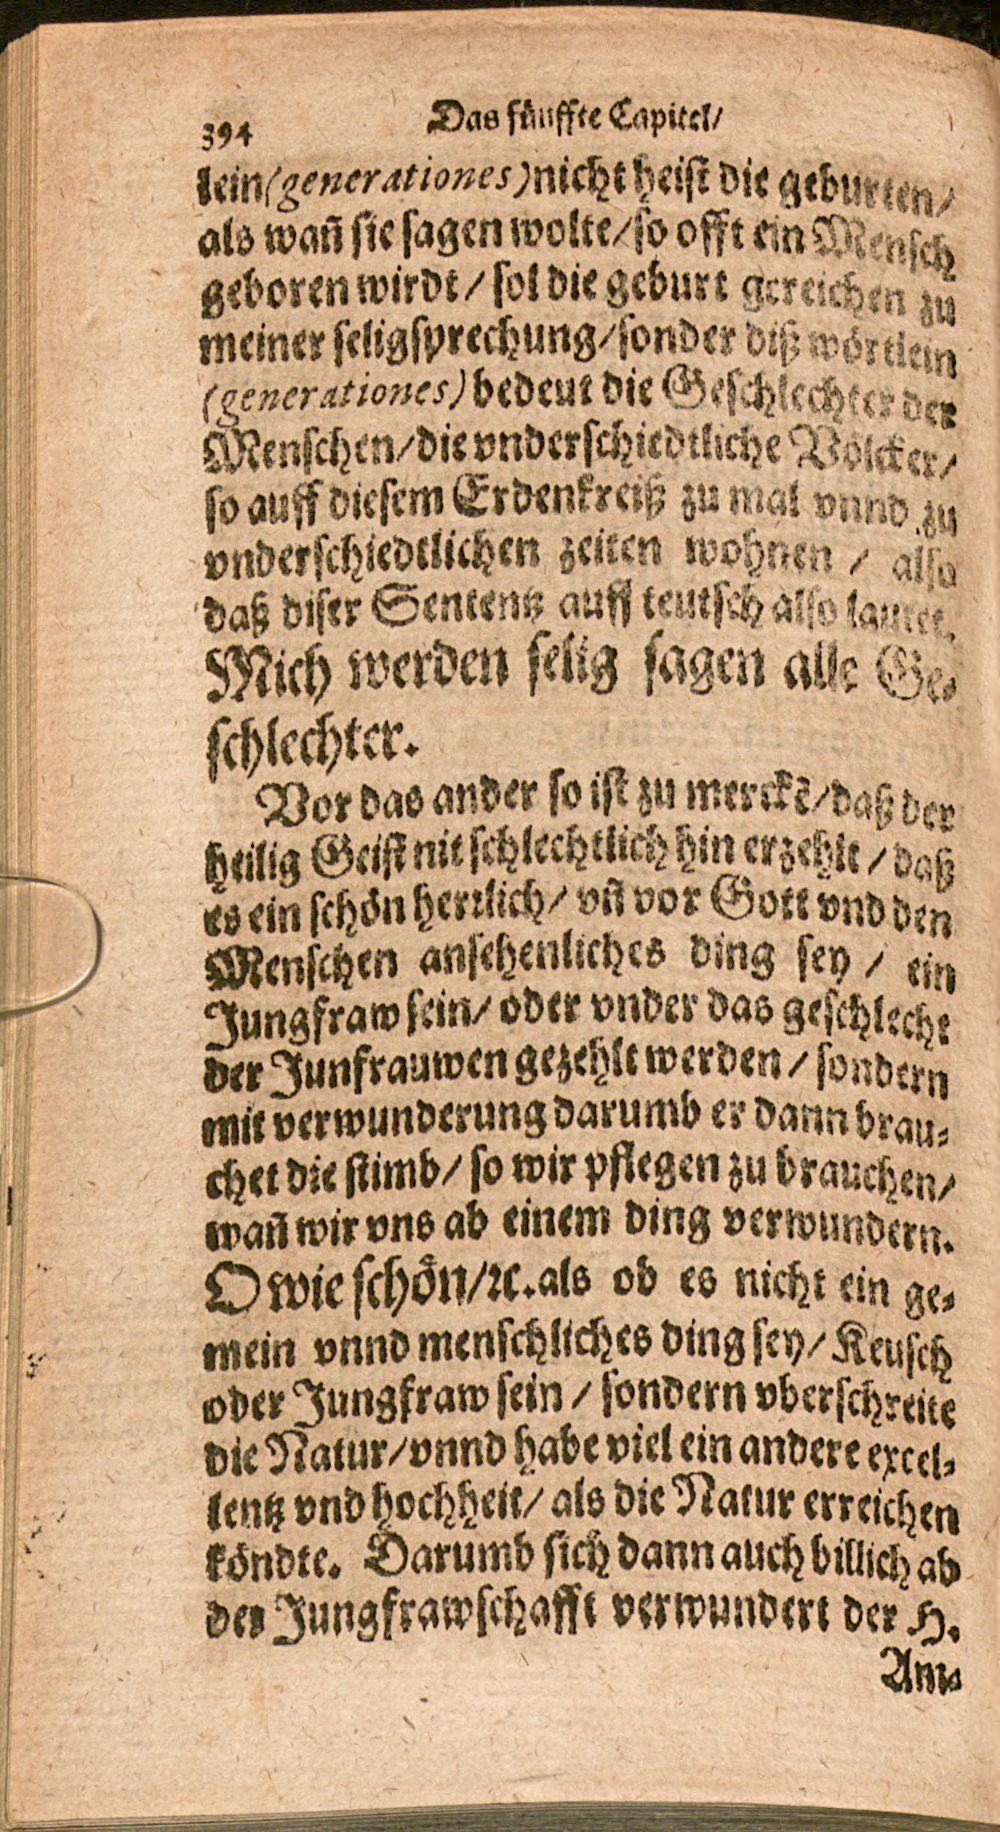 394
Das fünffte Capitel/
lein (generationes) nicht heist die geburten/
als wañ sie sagen wolte/ so offt ein Mensch
geboren wirdt/ sol die geburt gereichen zu
meiner seligsprechung/ sonder diß wörtlein
(generationes) bedeut die Geschlechter der
Menschen/ die vnderschiedtliche Völcker/
so auff diesem Erdenkreiß zu mal vnnd zu
vnderschiedtlichen zeiten wohnen / also
daß diser Sententz auff teutsch also lautet.
Mich werden selig sagen alle Ge-
schlechter.
Vor das ander so ist zu merckẽ/ daß der
heilig Geist nit schlechtlich hin erzehlt/ daß
es ein schön herrlich/ vñ vor Gott vnd den
Menschen ansehenliches ding sey / ein
Jungfraw sein/ oder vnder das geschlecht
der Junfrauwen gezehlt werden/ sondern
mit verwunderung darumb er dann brau-
chet die stimb/ so wir pflegen zu brauchen/
wañ wir vns ab einem ding verwundern.
O wie schön/ ꝛc. als ob es nicht ein ge-
mein vnnd menschliches ding sey/ Keusch
oder Jungfraw sein / sondern vberschreite
die Natur/ vnnd habe viel ein andere excel-
lentz vnd hochheit/ als die Natur erreichen
köndte. Darumb sich dann auch billich ab
der Jungfrawschafft verwundert der H.
Am-